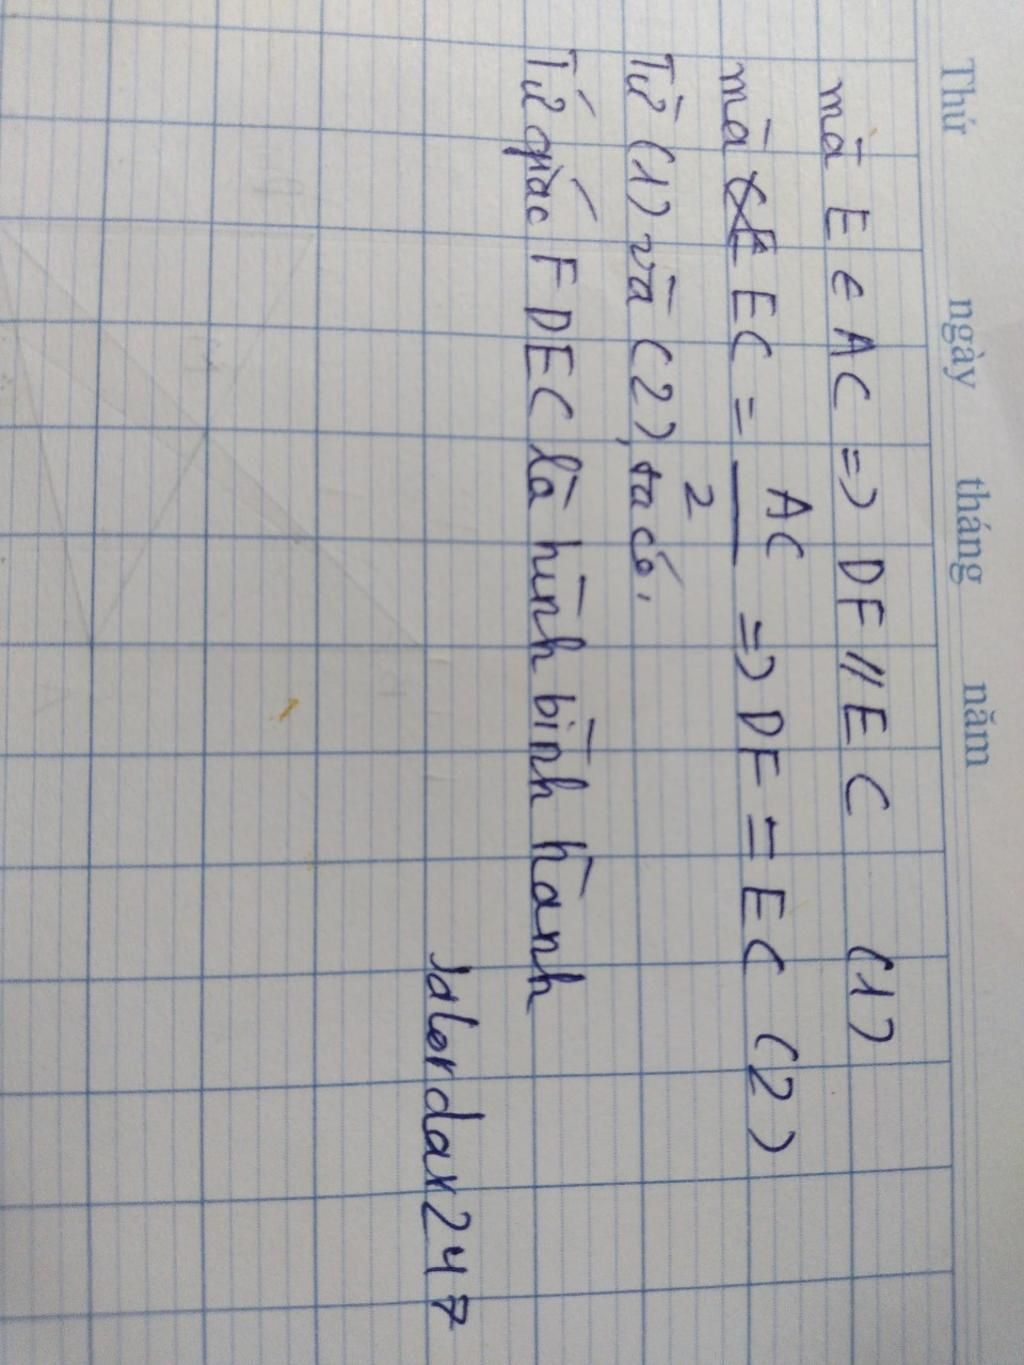 Thứ ngày tháng năm
mà E ∈ AC => DF // EC (1)
mà EC = AC / 2 => DF = EC (2)
Từ (1) và (2), ta có,
Tứ giác FDEC là hình bình hành